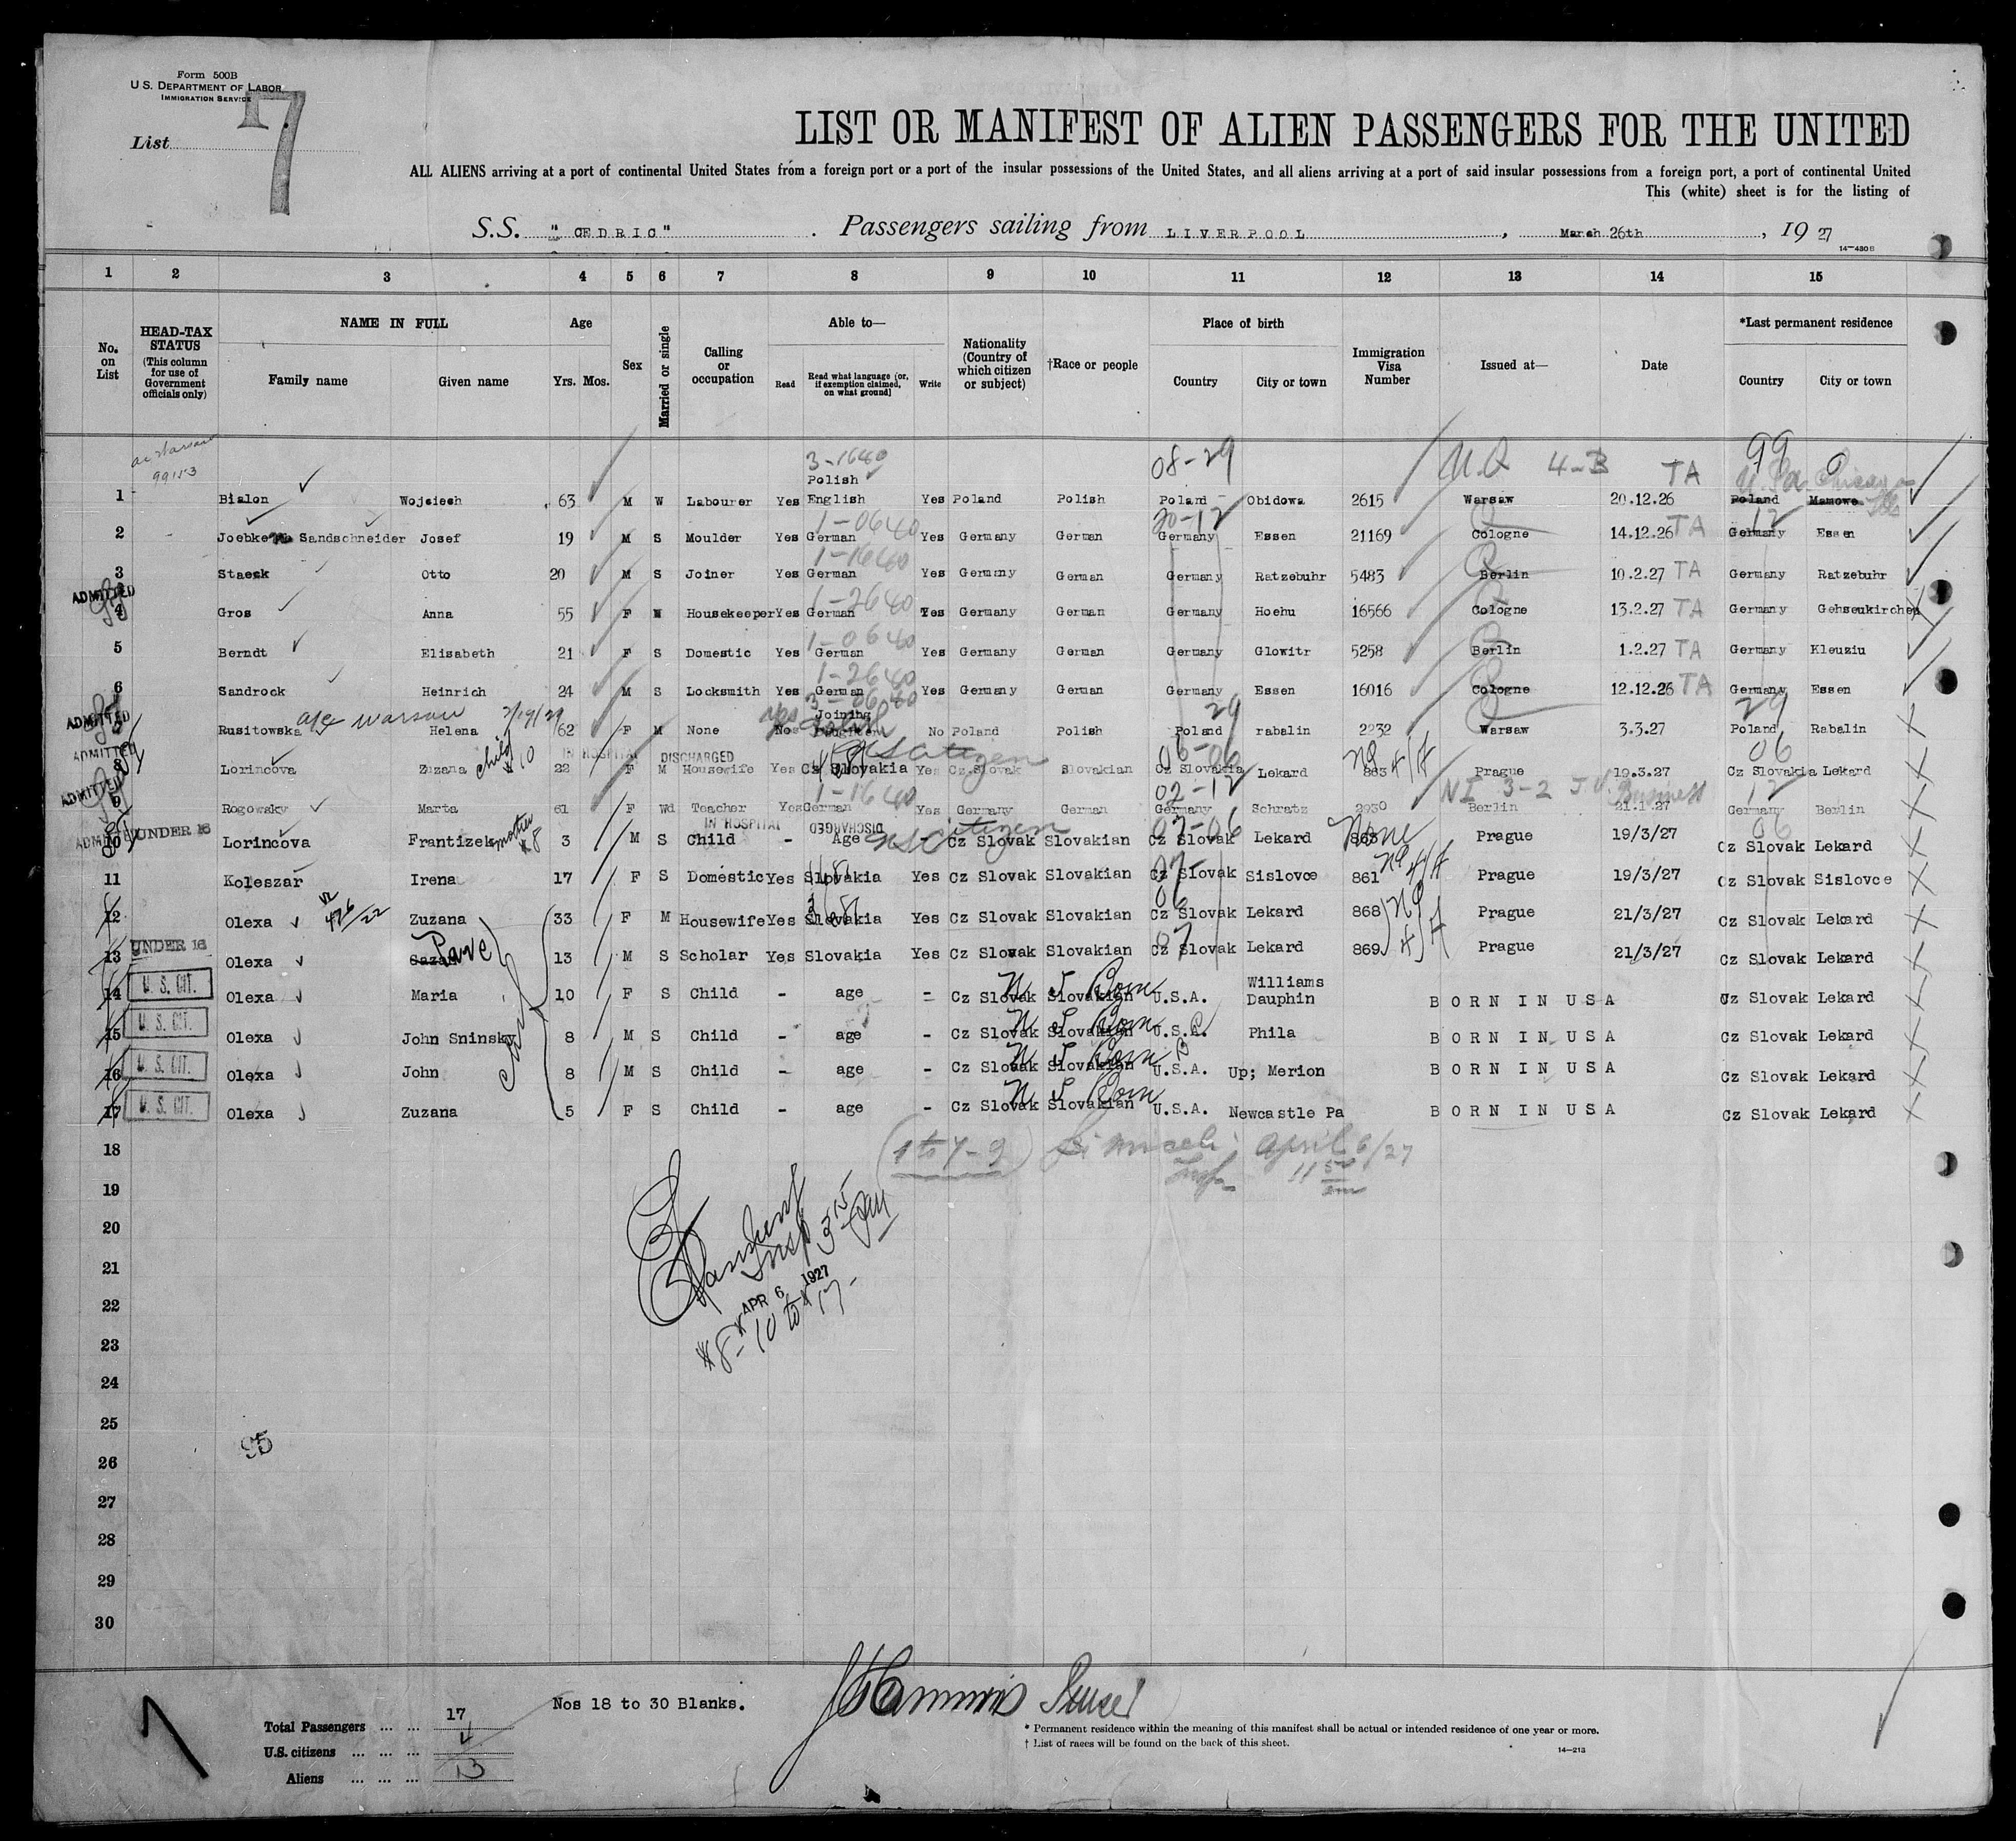 Form 500B
U.S. DEPARTMENT OF LABOR
IMMIGRATION SERVICE
List 17
LIST OR MANIFEST OF ALIEN PASSENGERS FOR THE UNITED
ALL ALIENS arriving at a port of continental United States from a foreign port or a port of the insular possessions of the United States, and all aliens arriving at a port of said insular possessions from a foreign port, a port of continental United
This (white) sheet is for the listing of
S.S. "CEDRIC". Passengers sailing from LIVERPOOL, March 26th, 1927
14-430B
1 2 3 4 5 6 7 8 9 10 11 12 13 14 15
No. on List
HEAD-TAX STATUS (This column for use of Government officials only)
NAME IN FULL
Family name Given name
Age
Yrs. Mos.
Sex
Married or single
Calling or occupation
Able to—
Read Read what language [or, if exemption claimed, on what ground] Write
Nationality (Country of which citizen or subject)
†Race or people
Place of birth
Country City or town
Immigration Visa Number
Issued at—
Date
*Last permanent residence
Country City or town
99153 3-1640 08-29 4-B TA 99
Polish
1 Bialon Wojsiech 63 M W Labourer Yes English Yes Poland Polish Poland Obidowa 2615 Warsaw 20.12.26 Poland Mamowe
1-0640 20-12 12
2 Joebke Sandschneider Josef 19 M S Moulder Yes German Yes Germany German Germany Essen 21169 Cologne 14.12.26 TA Germany Essen
1-1640
3 Staeck Otto 20 M S Joiner Yes German Yes Germany German Germany Ratzebuhr 5483 Berlin 10.2.27 TA Germany Ratzebuhr
ADMITTED 1-2640
4 Gros Anna 55 F W Housekeeper Yes German Yes Germany German Germany Hoehu 16566 Cologne 13.2.27 TA Germany Gehseukirchen
1-0640
5 Berndt Elisabeth 21 F S Domestic Yes German Yes Germany German Germany Glowitr 5258 Berlin 1.2.27 TA Germany Kleuziu
1-2640
6 Sandrock Heinrich 24 M S Locksmith Yes German Yes Germany German Germany Essen 16016 Cologne 12.12.26 TA Germany Essen
ADMITTED Warsaw 3-0640 Joining 29 29
7 Rusitowska Helena 62 F M None No Daughter No Poland Polish Poland rabalin 2232 Warsaw 3.3.27 Poland Rabalin
ADMITTED child #10 IN HOSPITAL DISCHARGED US citizen 06-06 06
8 Lorincova Zuzana 22 F M Housewife Yes Cz Slovakia Yes Cz Slovak Slovakian Cz Slovakia Lekard 863 Prague 19.3.27 Cz Slovakia Lekard
ADMITTED 1-1640 02-12 NI 3-2 Business 12
9 Rogowsky Marta 61 F Wd Teacher Yes German Yes Germany German Germany Schratz 2930 Berlin 21.1.27 Germany Berlin
ADMITTED UNDER 16 mother #8 IN HOSPITAL DISCHARGED US citizen 07-06 None 06
10 Lorincova Frantizek 3 M S Child - Age Cz Slovak Slovakian Cz Slovak Lekard 863 Prague 19/3/27 Cz Slovak Lekard
11 Koleszar Irena 17 F S Domestic Yes Slovakia Yes Cz Slovak Slovakian Cz Slovak Sislovce 861 Prague 19/3/27 Cz Slovak Sislovce
12 Olexa Zuzana 33 F M Housewife Yes Slovakia Yes Cz Slovak Slovakian Cz Slovak Lekard 868 Prague 21/3/27 Cz Slovak Lekard
UNDER 16
13 Olexa 13 M S Scholar Yes Slovakia Yes Cz Slovak Slovakian Cz Slovak Lekard 869 Prague 21/3/27 Cz Slovak Lekard
14 U.S. CIT. Olexa Maria 10 F S Child - age - Cz Slovak Slovakian U S Born U.S.A. Williams Dauphin BORN IN USA Cz Slovak Lekard
15 U.S. CIT. Olexa John Sninsky 8 M S Child - age - Cz Slovak Slovakian U S Born U.S.A. Phila BORN IN USA Cz Slovak Lekard
16 U.S. CIT. Olexa John 8 M S Child - age - Cz Slovak Slovakian U S Born U.S.A. Up; Merion BORN IN USA Cz Slovak Lekard
17 U.S. CIT. Olexa Zuzana 5 F S Child - age - Cz Slovak Slovakian U S Born U.S.A. Newcastle Pa BORN IN USA Cz Slovak Lekard
18 (1 to 7-9) April 6/27
19 Insp.
20
21 Insp 3 15 PM
22 APR 6 1927
23 #8- 10 to 17-
24
25
95
26
27
28
29
30
Nos 18 to 30 Blanks.
Total Passengers ... ... 17
U.S. citizens ... ... ... 4
Aliens ... ... ... 13
* Permanent residence within the meaning of this manifest shall be actual or intended residence of one year or more.
† List of races will be found on the back of this sheet.
14-213